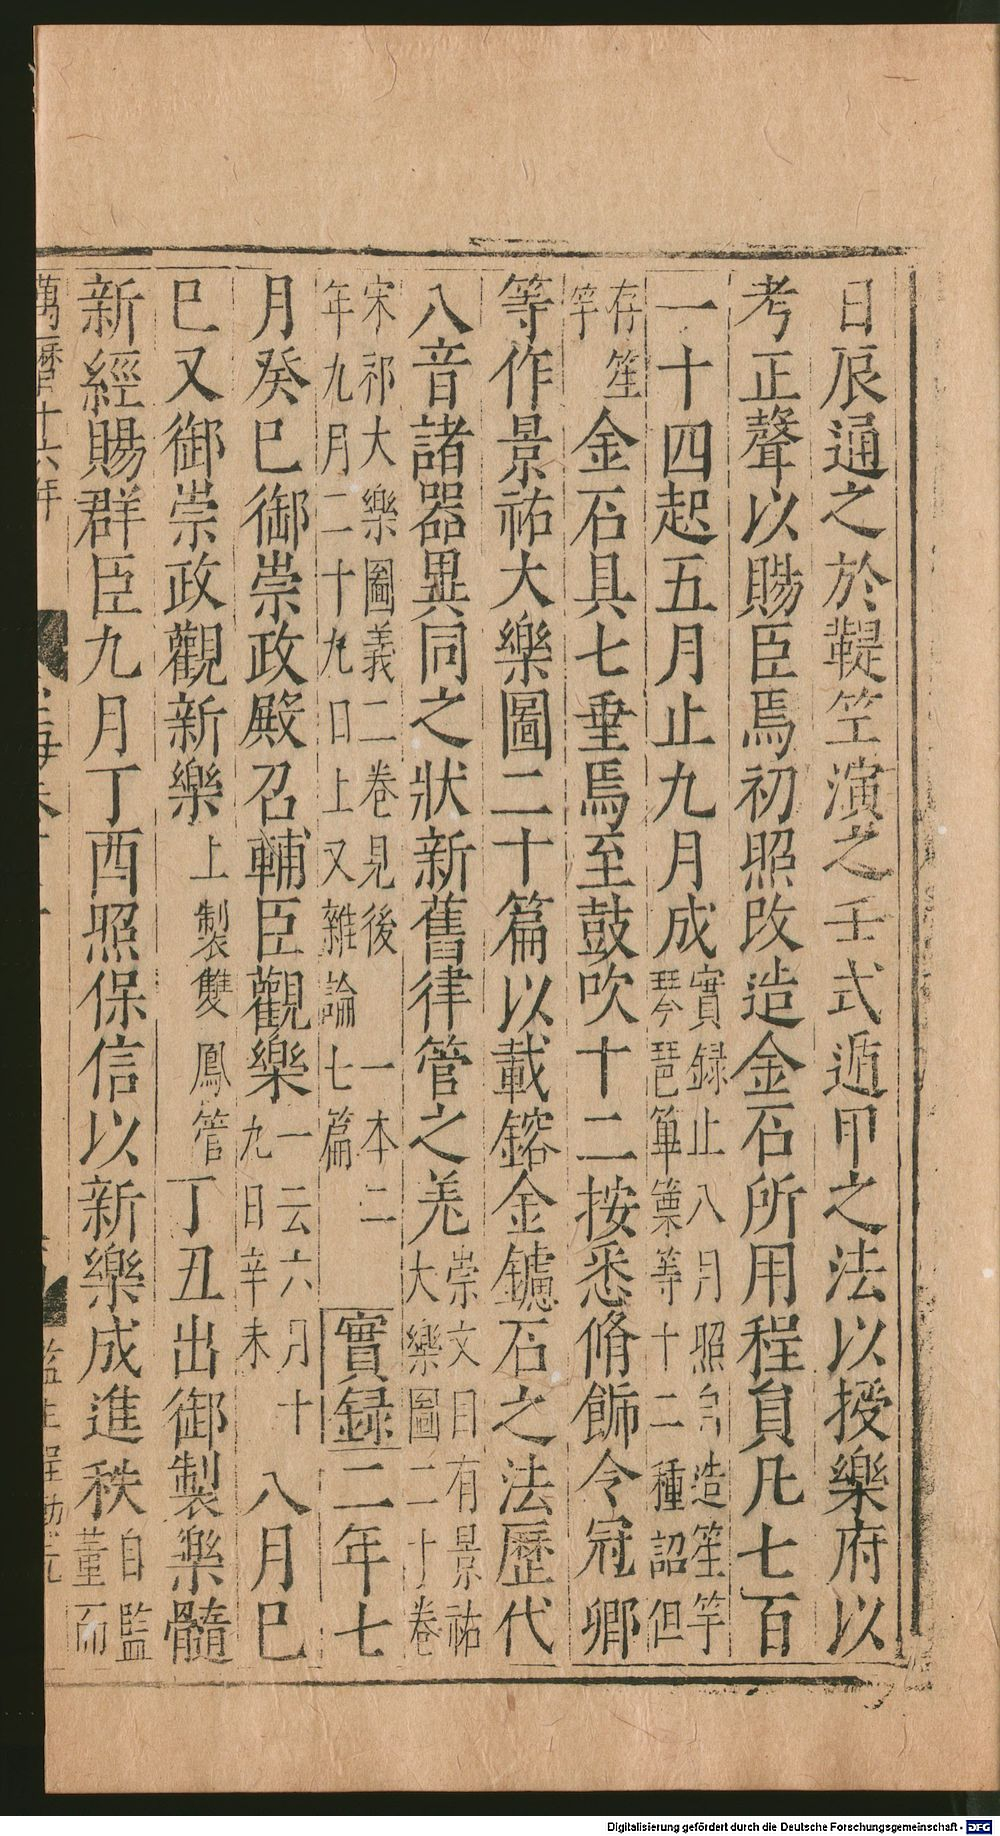 日辰通之於鞮竺演之壬式遁甲之法以授樂府以
考正聲以賜臣焉初照改造金石所用程員凡七百
一十四起五月止九月成實録止八月照自造笙竽
琴琶箄篥等十二種詔但
存笙
竽金石具七垂焉至鼓吹十二按悉脩飾令冠卿
等作景祐大樂圖二十篇以載鎔金鑢石之法歷代
八音諸器異同之狀新舊律管之差崇文目有景祐
大樂圖二十卷
宋祁大樂圖義二卷見後一本二
年九月二十九日上又雜論七篇實録二年七
月癸巳御崇政殿召輔臣觀樂一云六月十
九日辛未八月巳
巳又御崇政觀新樂上製雙鳳管丁丑出御製樂髓
新經賜群臣九月丁酉照保信以新樂成進秩自監
董而
萬曆十六年
監生程
Digitalisierung gefördert durch die Deutsche Forschungsgemeinschaft - DFG